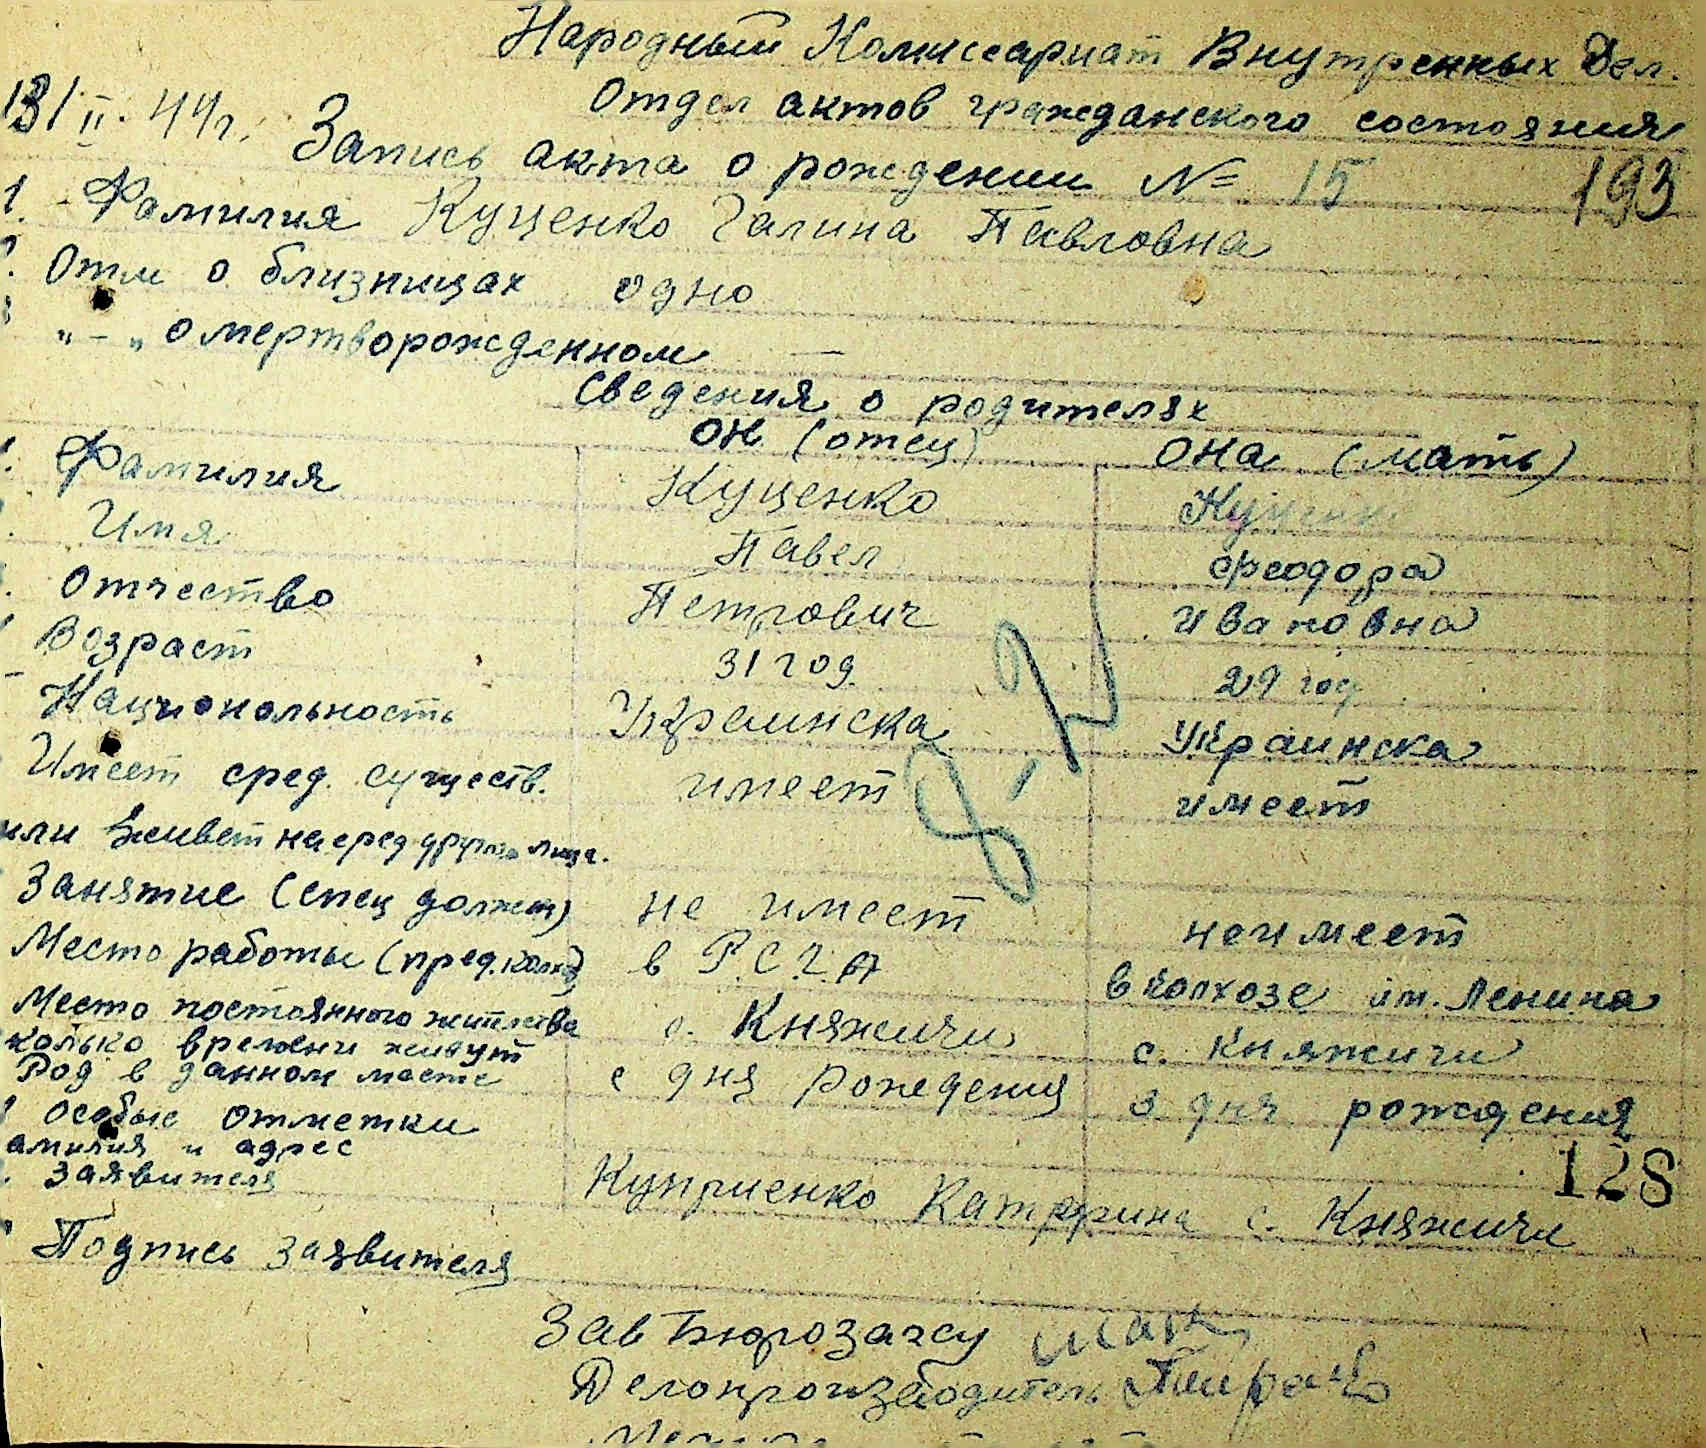 Народный Комиссариат Внутренных Дел.
Отдел актов гражданского состояния
13/II. 44г.
Запись акта о рождении № 15
193
1. Фамилия Куценко Галина Павловна
Отм о близницах одно
"-" о мертворожденном —
Сведения о родителях
он (отец) она (мать)
Фамилия Куценко
Имя Павел Феодора
Отчество Петрович Ивановна
Возраст 31 год. 29 год
Национальность Украинска Украинска
Имеет сред. существ. имеет имеет
или живет на сред других лица.
Занятие (спец должн) не имеет неимеет
Место работы (пред. колхоз) в Р.С.Ч.А в колхозе им. Ленина
Место постоянного жительства с. Княжичи с. Княжичи
колько времени живут
Род в данном месте с дня рождения з дня рождения
особые отметки
амилия и адрес
заявителя Куприенко Катррина с. Княжичи
128
Подпись заявителя
Зав Бюрозагсу
Делопроизводитель